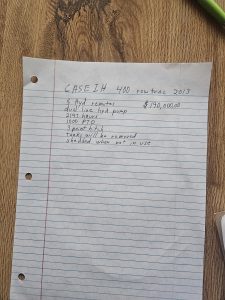 CASE IH 400 rowtrac 2013
5 Hyd remotes $190,000.00
dual line hyd pump
2193 hours
1000 PTO
3 point hitch
Tanks will be removed
shedded when not in use